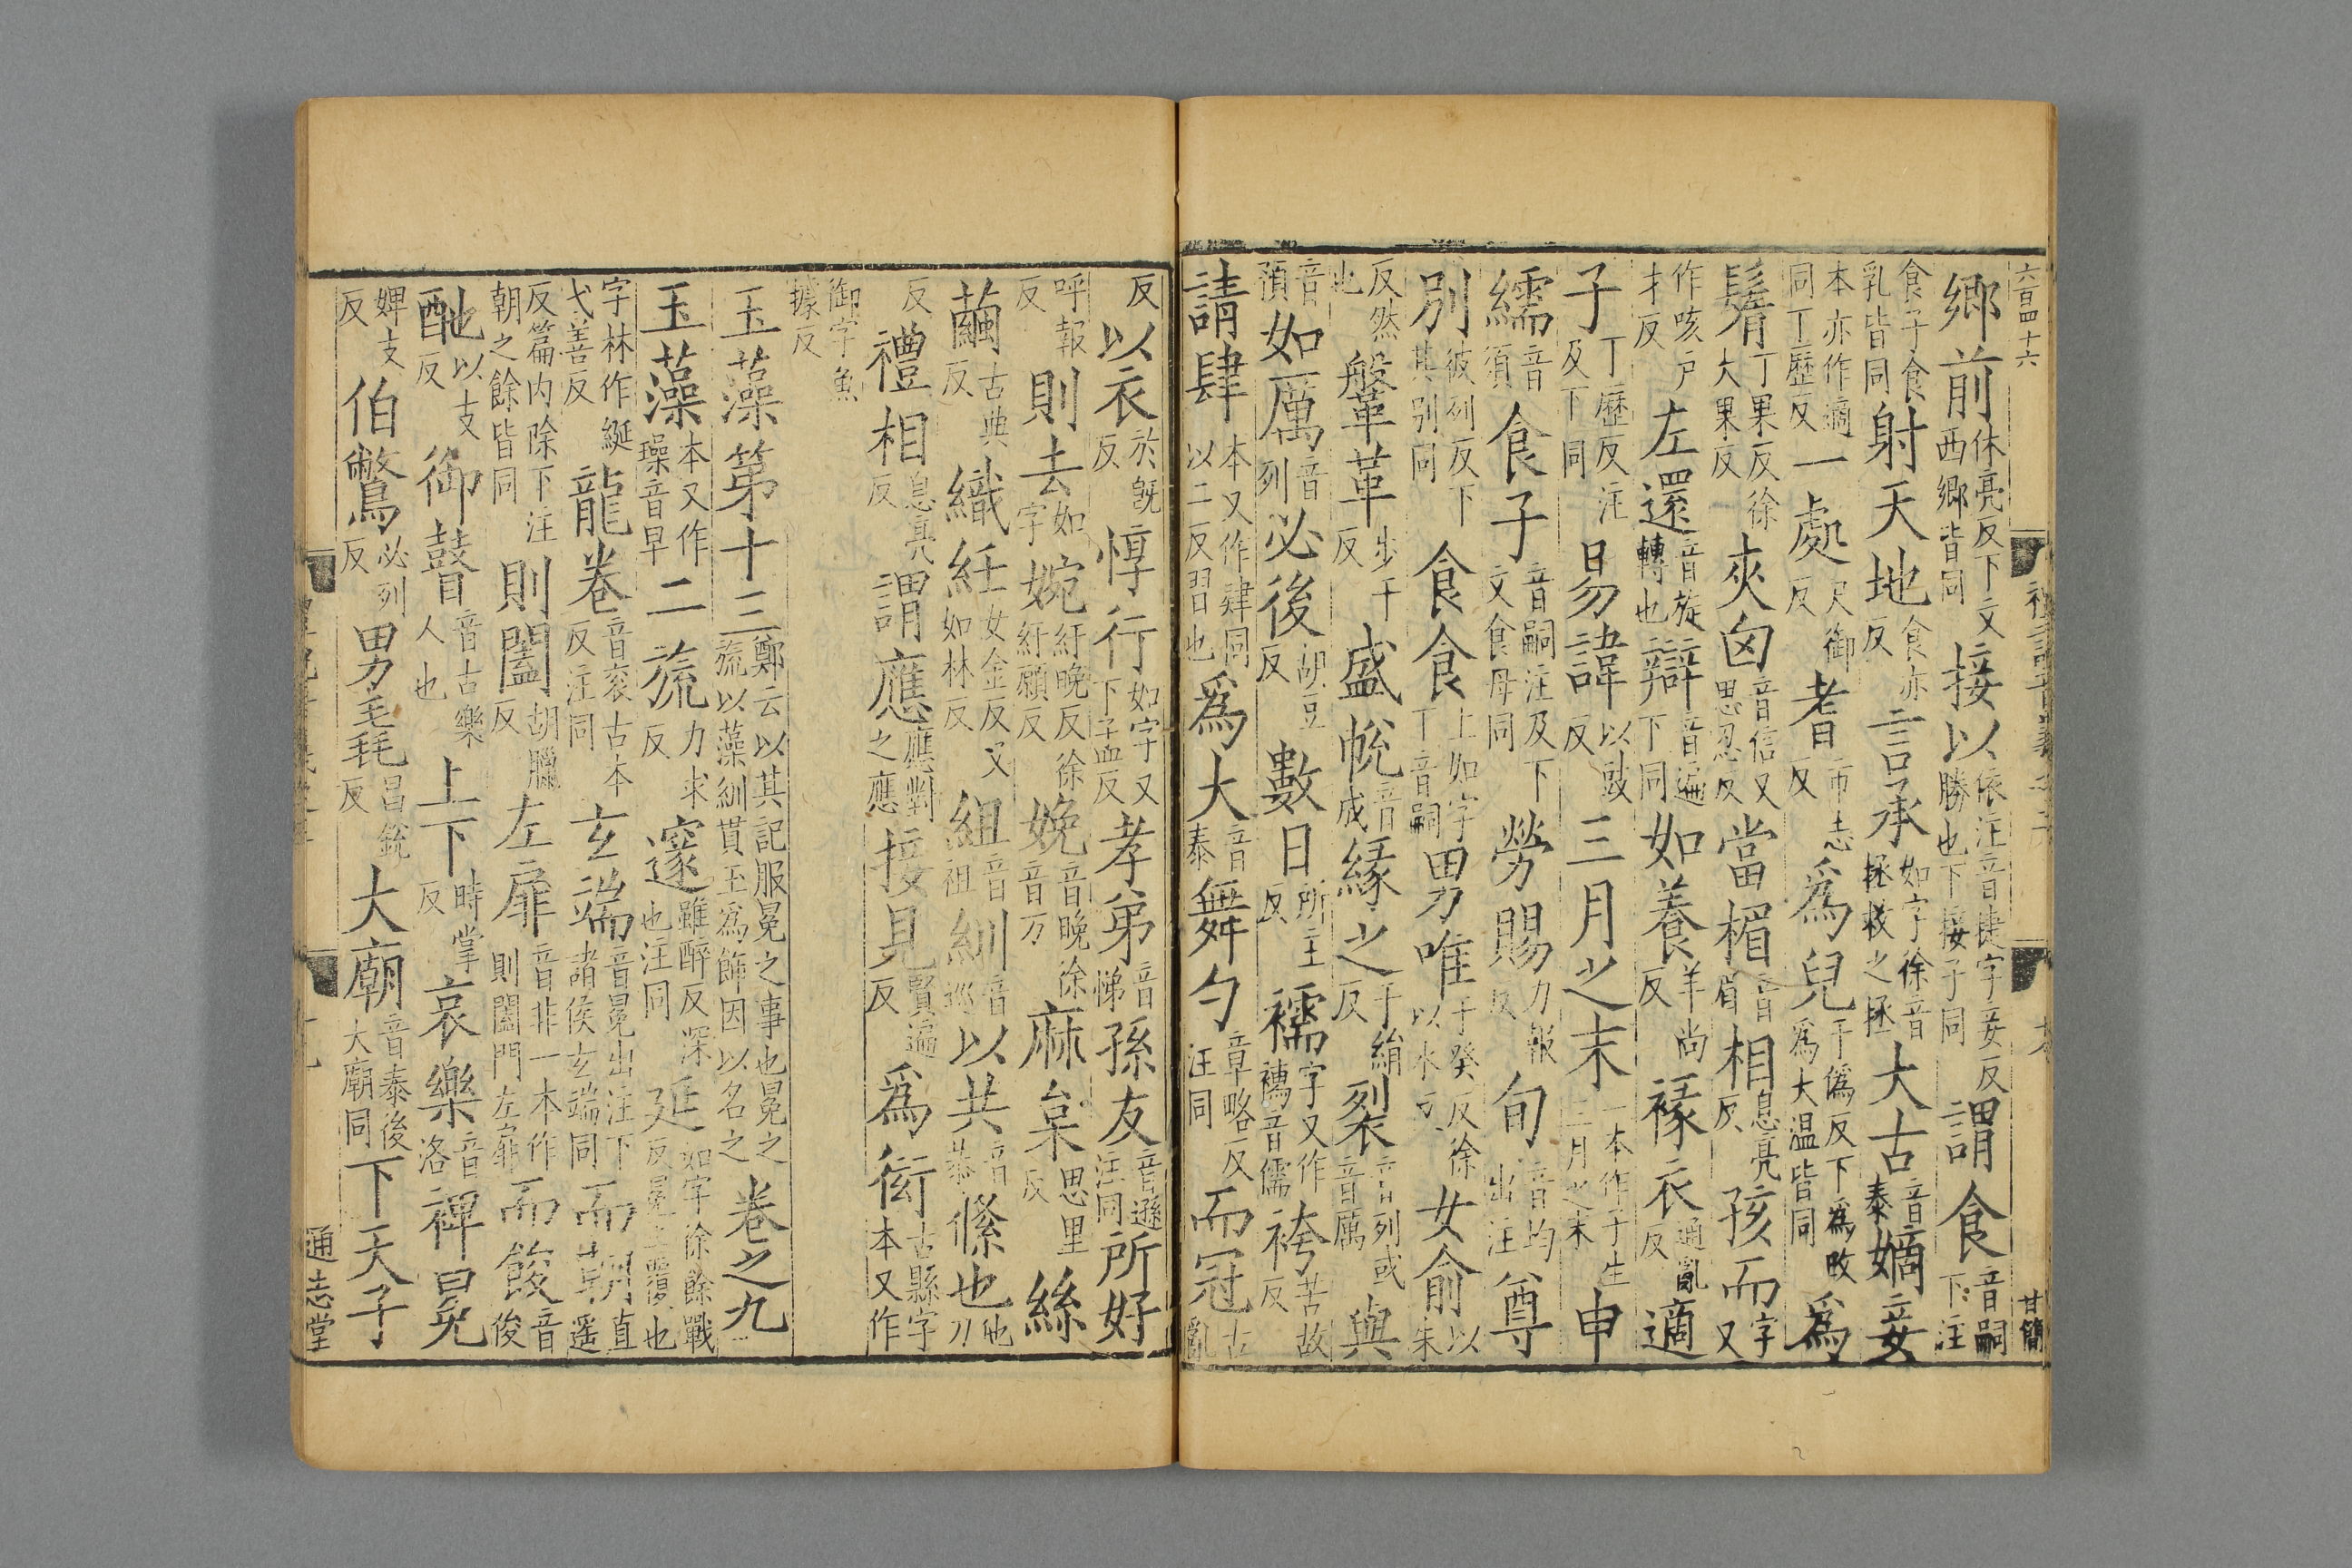 鄉前休亮反下文西鄉皆同接以依注音捷字妾反勝也下接子同謂食音嗣下注
食子食乳皆同射天地食亦反言承如字徐音拯救之拯大古音泰嫡妾
本亦作適同丁歷反一處尺御反耆市志反爲兒于僞反下爲改爲大温皆同爲
鬌丁果反徐大果反夾囟音信又思忍反當楣音眉相息亮反孩而字又
作咳户才反左還音旋轉也辯音遍下同如養羊尚反褖衣通亂反適
子丁歷反注及下同易諱以豉反三月之末一本作子生三月之末申
繻音須食子音嗣注及下文食母同勞賜力報反旬音均出注尊
別彼列反下其别同食食上如字下音嗣男唯于癸反徐以水反女俞以朱
反然也鞶革步干反盛帨音成緣之于絹反裂音列或音厲與
音預如厲音列必後胡豆反數日所主反襦字又作𧝄音儒袴苦故反
請肄本又作肄同以二反習也爲大音泰舞勺章略反注同而冠古亂
反以衣於旣反惇行如字又下孟反孝弟音悌孫友音遜注同所好
呼報反則去如字婉紆晚反徐紆願反娩音晚徐音万麻枲思里反絲
繭古典反織紝女金反又如林反組音祖紃音巡以共音恭絛也他刀
反禮相息亮反謂應應對之應接見賢遍反爲衒古縣字本又作
御字魚據反
玉藻第十三鄭云以其記服冕之事也冕之旒以藻紃貫玉爲飾因以名之卷之九
玉藻本又作璪音早二旒力求反邃雖醉反深也注同延如字徐餘戰反冕上覆也
字林作綖弋善反龍卷音衮古本反注同玄端音冕出注下諸侯玄端同而朝直遥
反篇内除下注朝之餘皆同則闔胡臘反左扉音非一本作則闔門左扉而餕音俊
酏以支反御瞽音古樂人也上下時掌反哀樂音洛裨冕
婢支反伯鷩必列反男毳昌銳反大廟音泰後大廟同下天子
通志堂